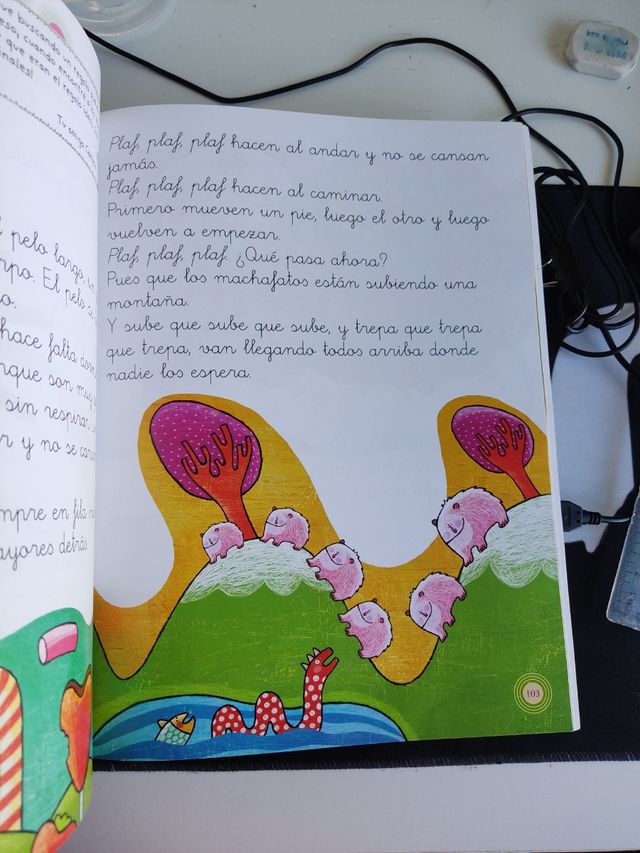 ve buscando un
eso, cuando
que eran el regalo
nales!
Tu amiga
pelo largo, un
rpo. El pelo
o.
hace falta
nque son muy
sin respirar
r y no se
mpre en fila
ayores detrás.
Plaf, plaf, plaf hacen al andar y no se cansan
jamás.
Plaf, plaf, plaf hacen al caminar.
Primero mueven un pie, luego el otro y luego
vuelven a empezar.
Plaf, plaf, plaf. ¿Qué pasa ahora?
Pues que los machafatos están subiendo una
montaña.
Y sube que sube que sube, y trepa que trepa
que trepa, van llegando todos arriba donde
nadie los espera.
103